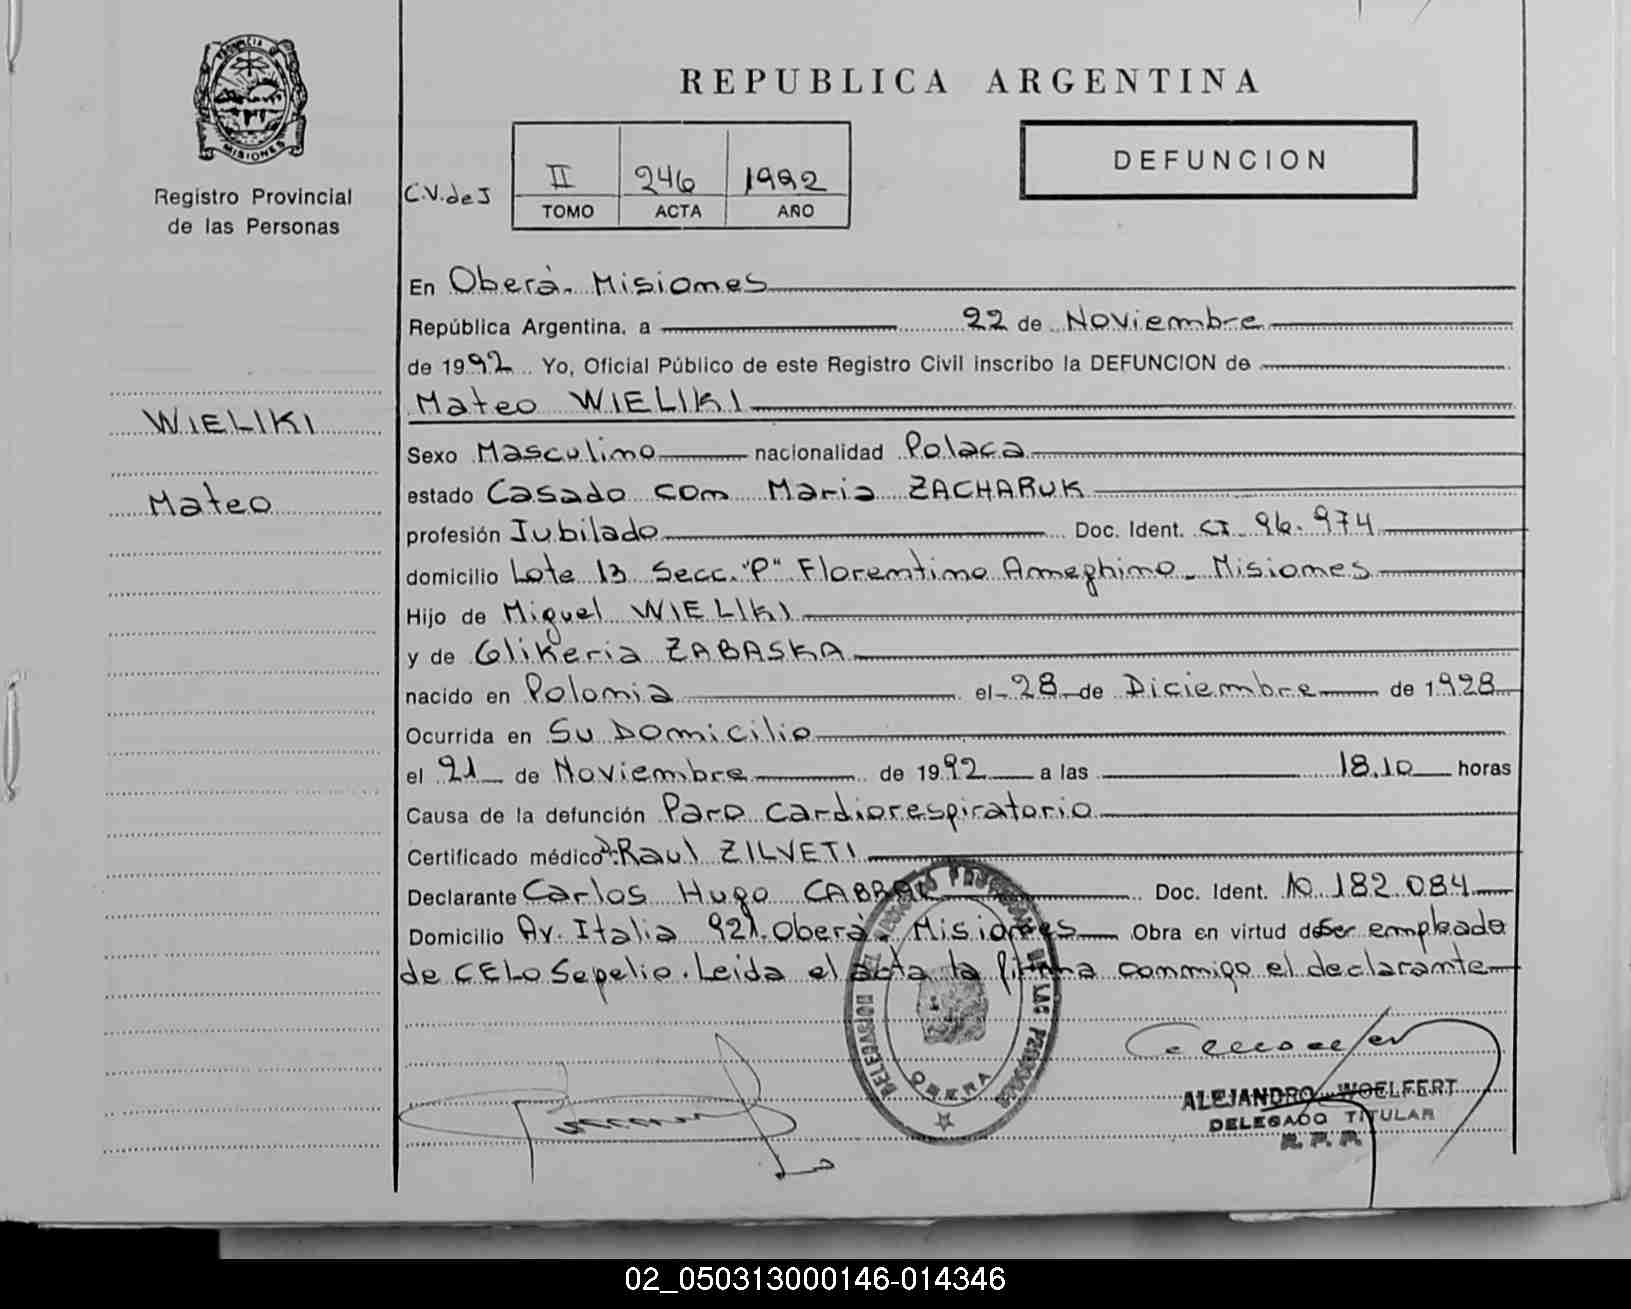 PROVINCIA DE
MISIONES
Registro Provincial
de las Personas
REPUBLICA ARGENTINA
DEFUNCION
C.V.de J
II 246 1992
TOMO ACTA AÑO
WIELIKI
Mateo
En Oberá. Misiones
República Argentina, a 22 de Noviembre
de 1992 Yo, Oficial Público de este Registro Civil inscribo la DEFUNCION de
Mateo WIELIKI
Sexo Masculino nacionalidad Polaca
estado Casado con Maria ZACHARUK
profesión Jubilado Doc. Ident. CI 96.974
domicilio Lote 13 Secc. "P" Florentino Ameghino - Misiones
Hijo de Miguel WIELIKI
y de Glikeria ZABASKA
nacido en Polonia el 28 de Diciembre de 1928
Ocurrida en Su Domicilio
el 21 de Noviembre de 1992 a las 18.10 horas
Causa de la defunción Paro cardiorespiratorio
Certificado médico Dr. Raul ZILVETI
Declarante Carlos Hugo CABRAL Doc. Ident. 10.182.084
Domicilio Av. Italia 921. Oberá. Misiones Obra en virtud de Ser empleado
de CELO Sepelio. Leida el acta la firma conmigo el declarante
OBERA
ALEJANDRO WOELFERT
DELEGADO TITULAR
R. P. P.
02_050313000146-014346